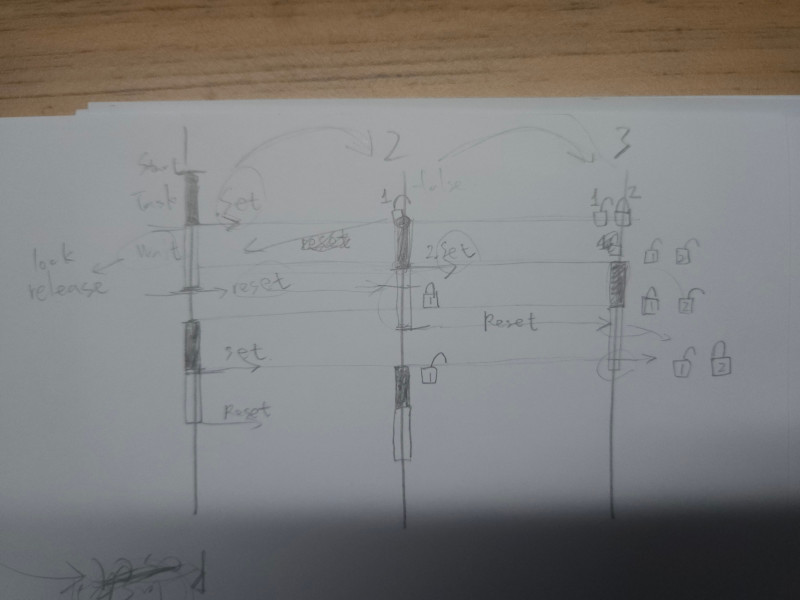 2
3
Start
Task
Set
1
1
2
wait
reset
2.Set
1
2
look
release
reset
1
1
2
Reset
set
1
1
2
Reset